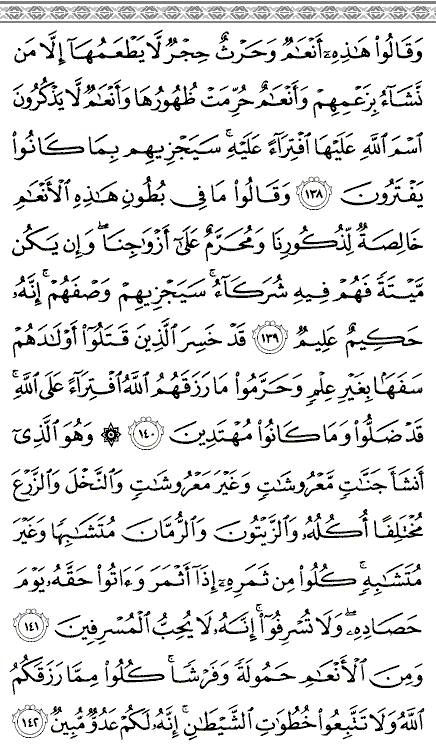 وَقَالُوا۟ هَـٰذِهِۦٓ أَنْعَـٰمٌ وَحَرْثٌ حِجْرٌ لَّا يَطْعَمُهَآ إِلَّا مَن
نَّشَآءُ بِزَعْمِهِمْ وَأَنْعَـٰمٌ حُرِّمَتْ ظُهُورُهَا وَأَنْعَـٰمٌ لَّا يَذْكُرُونَ
ٱسْمَ ٱللَّهِ عَلَيْهَا ٱفْتِرَآءً عَلَيْهِ ۚ سَيَجْزِيهِم بِمَا كَانُوا۟
يَفْتَرُونَ ١٣٨ وَقَالُوا۟ مَا فِى بُطُونِ هَـٰذِهِ ٱلْأَنْعَـٰمِ
خَالِصَةٌ لِّذُكُورِنَا وَمُحَرَّمٌ عَلَىٰٓ أَزْوَٰجِنَا ۖ وَإِن يَكُن
مَّيْتَةً فَهُمْ فِيهِ شُرَكَآءُ ۚ سَيَجْزِيهِمْ وَصْفَهُمْ ۚ إِنَّهُۥ
حَكِيمٌ عَلِيمٌ ١٣٩ قَدْ خَسِرَ ٱلَّذِينَ قَتَلُوٓا۟ أَوْلَـٰدَهُمْ
سَفَهًۢا بِغَيْرِ عِلْمٍ وَحَرَّمُوا۟ مَا رَزَقَهُمُ ٱللَّهُ ٱفْتِرَآءً عَلَى ٱللَّهِ ۚ
قَدْ ضَلُّوا۟ وَمَا كَانُوا۟ مُهْتَدِينَ ١٤٠ ۞ وَهُوَ ٱلَّذِىٓ
أَنشَأَ جَنَّـٰتٍ مَّعْرُوشَـٰتٍ وَغَيْرَ مَعْرُوشَـٰتٍ وَٱلنَّخْلَ وَٱلزَّرْعَ
مُخْتَلِفًا أُكُلُهُۥ وَٱلزَّيْتُونَ وَٱلرُّمَّانَ مُتَشَـٰبِهًا وَغَيْرَ
مُتَشَـٰبِهٍ ۚ كُلُوا۟ مِن ثَمَرِهِۦٓ إِذَآ أَثْمَرَ وَءَاتُوا۟ حَقَّهُۥ يَوْمَ
حَصَادِهِۦ ۖ وَلَا تُسْرِفُوٓا۟ ۚ إِنَّهُۥ لَا يُحِبُّ ٱلْمُسْرِفِينَ ١٤١
وَمِنَ ٱلْأَنْعَـٰمِ حَمُولَةً وَفَرْشًا ۚ كُلُوا۟ مِمَّا رَزَقَكُمُ
ٱللَّهُ وَلَا تَتَّبِعُوا۟ خُطُوَٰتِ ٱلشَّيْطَـٰنِ ۚ إِنَّهُۥ لَكُمْ عَدُوٌّ مُّبِينٌ ١٤٢